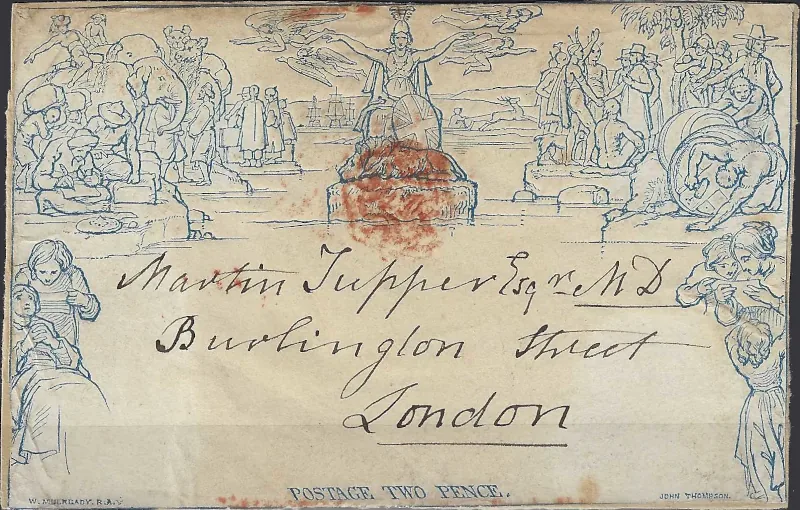 Martin Tupper Esqr. MD
Burlington Street
London
POSTAGE TWO PENCE.
W. MULREADY. R.A.
JOHN THOMPSON.